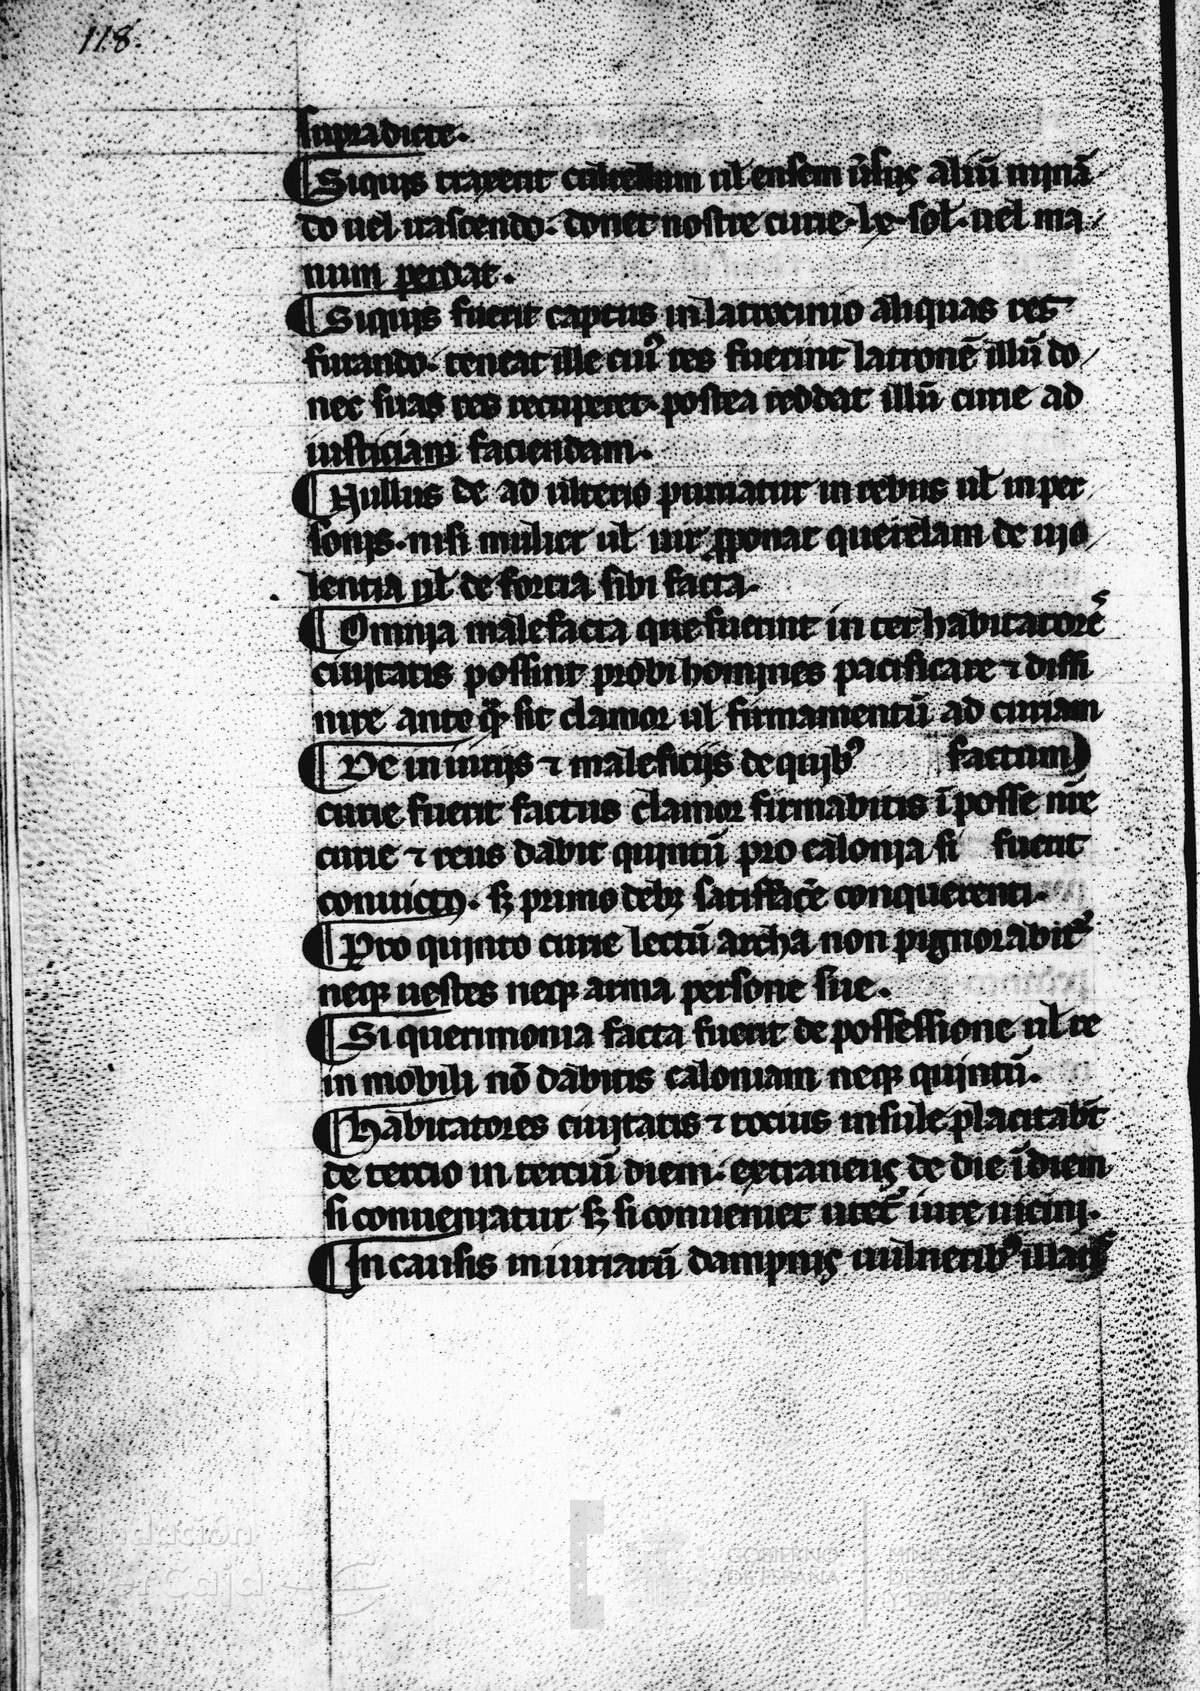 118.
supradicte.
Siquis traxerit cultellum ul̄ ensem ūsus aliū minā
do uel irascendo. donet nostre curie. lx. sol. uel ma
num perdat.
Siquis fuerit captus in latrocinio aliquas res
furando. teneat ille cui9 res fuerint latronē illū do
nec suas res recuperet. postea reddat illū curie ad
iusticiam faciendam.
Nullus de ad ulterio puniatur in rebus ul̄ in per
sonis. nisi mulier ul̄ uir ꝓponat querelam de uio
lentia ul̄ de forcia sibi facta.
Omnia malefacta que fuerint in ter habitatores
ciuitatis possint probi homines pacificare ⁊ diffi
nire ante q̄ sit clamor ul̄ firmamentū ad curiam
De iniuriis ⁊ maleficiis de quib9 factum
curie fuerit factus clamor firmabitis ī posse nr̄e
curie ⁊ reus dabit quintū pro calonia si fuerit
conuict9. sꝫ primo debꝫ satisfacē conquerenti.
Pro quinto curie lectū archa non pignorabit᷑
neqꝫ uestes neqꝫ arma persone sue.
Si querimonia facta fuerit de possessione ul̄ re
in mobili nō dabitis caloniam neqꝫ quintū.
Habitatores ciuitatis ⁊ tocius insule placitabt̄
de tercio in terciū diem. extraneus de die ī diem
si conueniatur sꝫ si conueniet utet᷑ iure uicini.
In causis iniuriarū dampnis uulnerib9 illatis
Fundación
iberCaja
GOBIERNO
DE ESPAÑA
MINISTERIO
DE EDUCACIÓN
Y DEPORTE